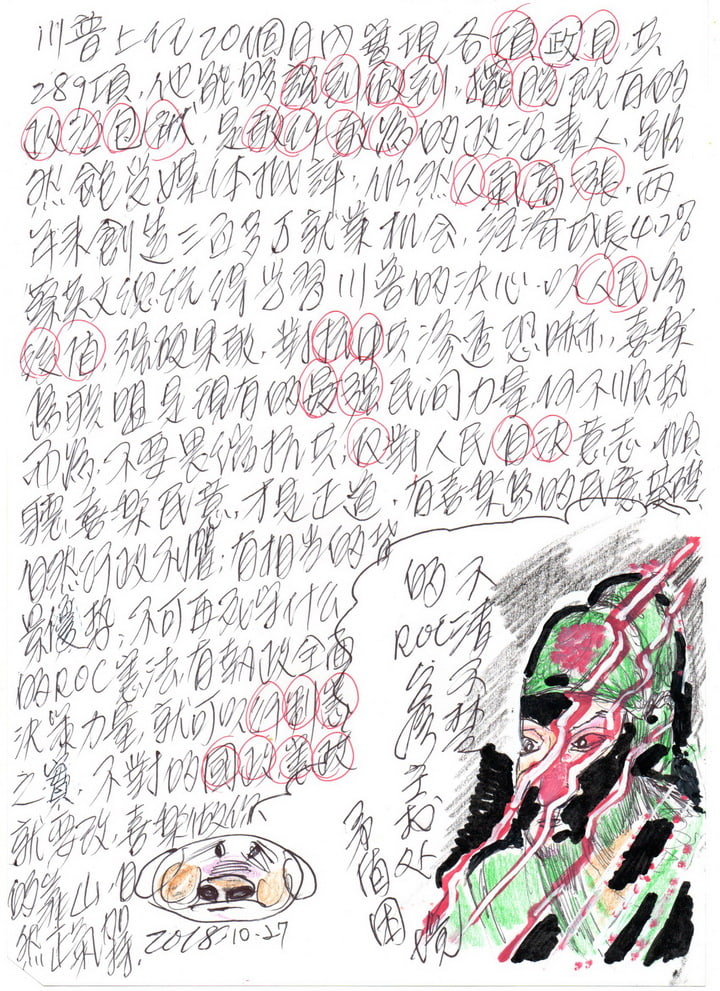 川普上任20個月內實現各項政見共
289項,他能够說到做到,擺脫既有的
政治包袱,是敢作敢為的政治素人,雖
然飽受媒体批評,仍然人氣高漲,兩
年來創造三百多万就業机会,經濟成長4.2%
蔡英文總統得学習川普的決心,以人民為
後盾,强硬果敢,對抗中共滲透恐嚇,喜樂
島联盟是現有的最强民间力量,何不順势
而為,不要畏縮抗共,反對人民自决意志,傾
聽喜樂民意,才是正道,有喜樂島的民意基礎
自然行政不懼,有相当的背
景優势,不可再死守什么
的ROC憲法,有朝政全面
決策力量,就可以行制憲
之實,不對的國政黨政
就要改,喜樂做你
的靠山,自
然正氣
2018-10-27
不清不楚
的ROC
矛盾困境